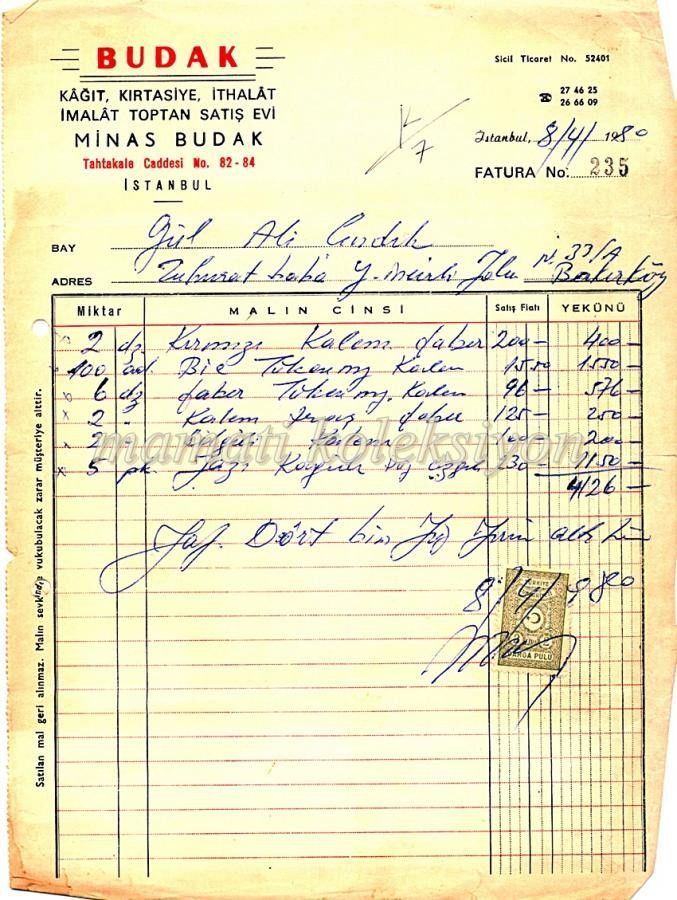 BUDAK
KÂĞIT, KIRTASİYE, İTHALÂT
İMALÂT TOPTAN SATIŞ EVİ
MİNAS BUDAK
Tahtakale Caddesi No. 82-84
İSTANBUL
Sicil Ticaret No. 52401
27 46 25
26 66 09
İstanbul, 8/4/1980
FATURA No: 235
BAY Gül Ali
ADRES Zuhurat baba Y. İncirli Yolu N. 33/A
Bakırköy
Miktar MALIN CİNSİ Satış Fiatı YEKÛNÜ
2 dz Kırmızı Kalem faber 200- 400-
100 ad. Bic Tükenmez Kalem 15 50 1550-
6 dz faber Tükenmez Kalem 96- 576-
2 " Kalem faber 125- 250-
2 100- 200-
5 pk. Yazı 230- 1150-
4126-
Yal. Dört bin Yüz Yirmi altı Lira
8/4/980
DAMGA PULU
mamati koleksiyon
Satılan mal geri alınmaz. Malın sevkinde vukubulacak zarar müşteriye aittir.